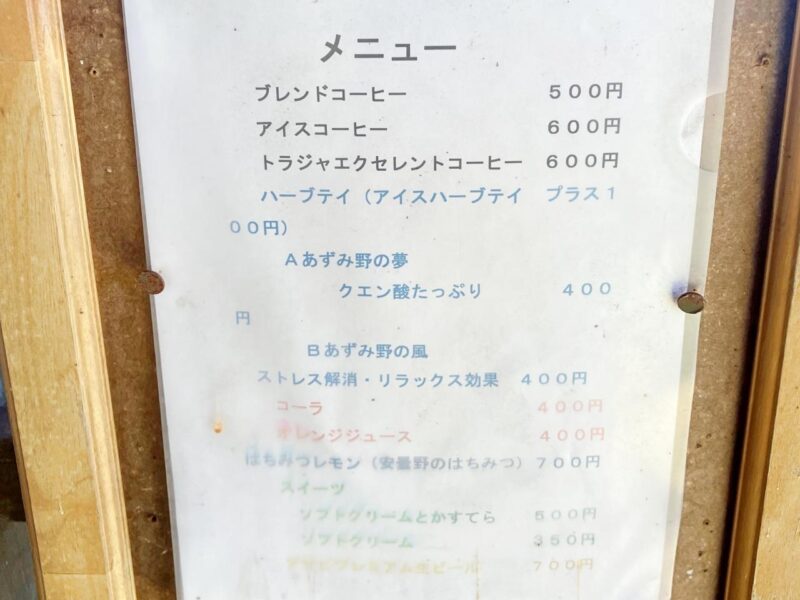 メニュー
ブレンドコーヒー　５００円
アイスコーヒー　６００円
トラジャエクセレントコーヒー　６００円
ハーブテイ（アイスハーブテイ　プラス１
００円）
Ａあずみ野の夢
クエン酸たっぷり　４００
円
Ｂあずみ野の風
ストレス解消・リラックス効果　４００円
コーラ　４００円
オレンジジュース　４００円
はちみつレモン（安曇野のはちみつ）７００円
スイーツ
ソフトクリームとかすてら　５００円
ソフトクリーム　３５０円
アサヒプレミアム生ビール　７００円